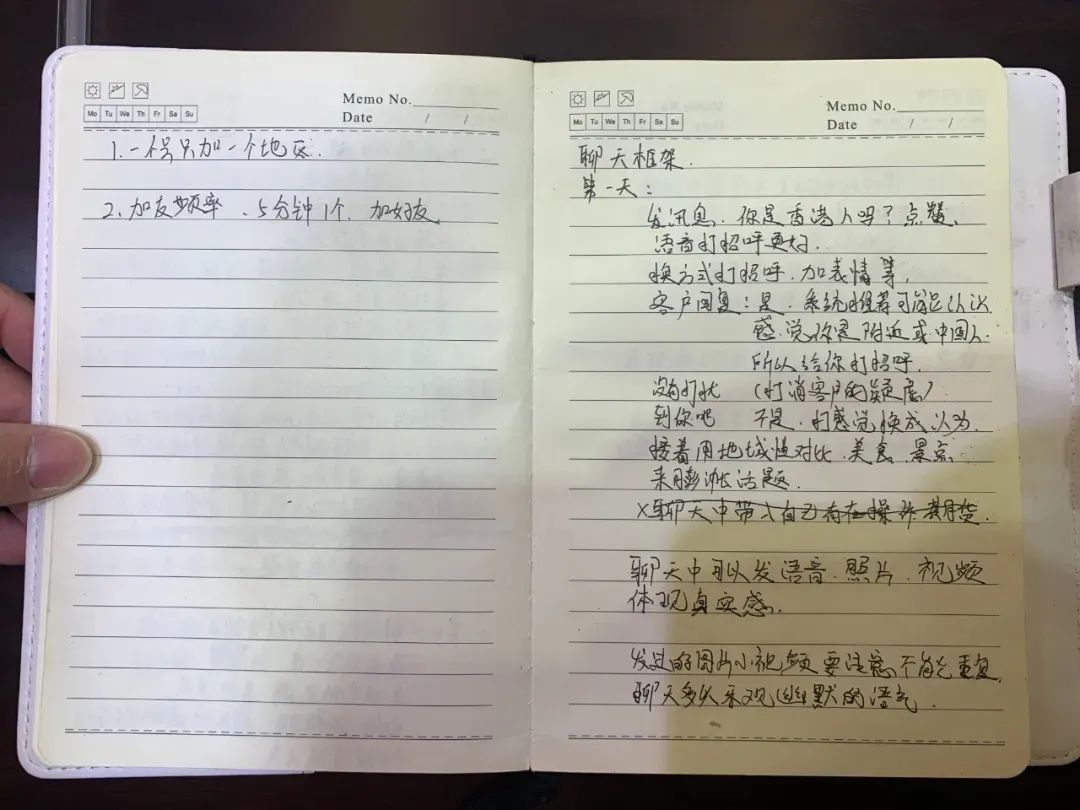 Memo No.
Mo Tu We Th Fr Sa Su
Date / /
1. 一号只加一个地区.
2. 加友频率、5分钟1个、加好友
Memo No.
Mo Tu We Th Fr Sa Su
Date / /
聊天框架.
第一天:
发讯息、你是香港人吗?点赞、
语音打招呼更好.
换方式打招呼.加表情等,
客户回复:是、系统推荐可能认识
感觉你是附近或中国人.
所以给你打招呼.
没有打扰 (打消客户的疑虑)
到你吧 不是、打感觉换成以为.
接着用地域性对比.美食.景点
来膨涨话题.
X聊天中带入自己有在操作期货.
聊天中可以发语音.照片.视频
体现真实感.
发过的图片小视频要注意不能重复
聊天多以乐观幽默的语气.